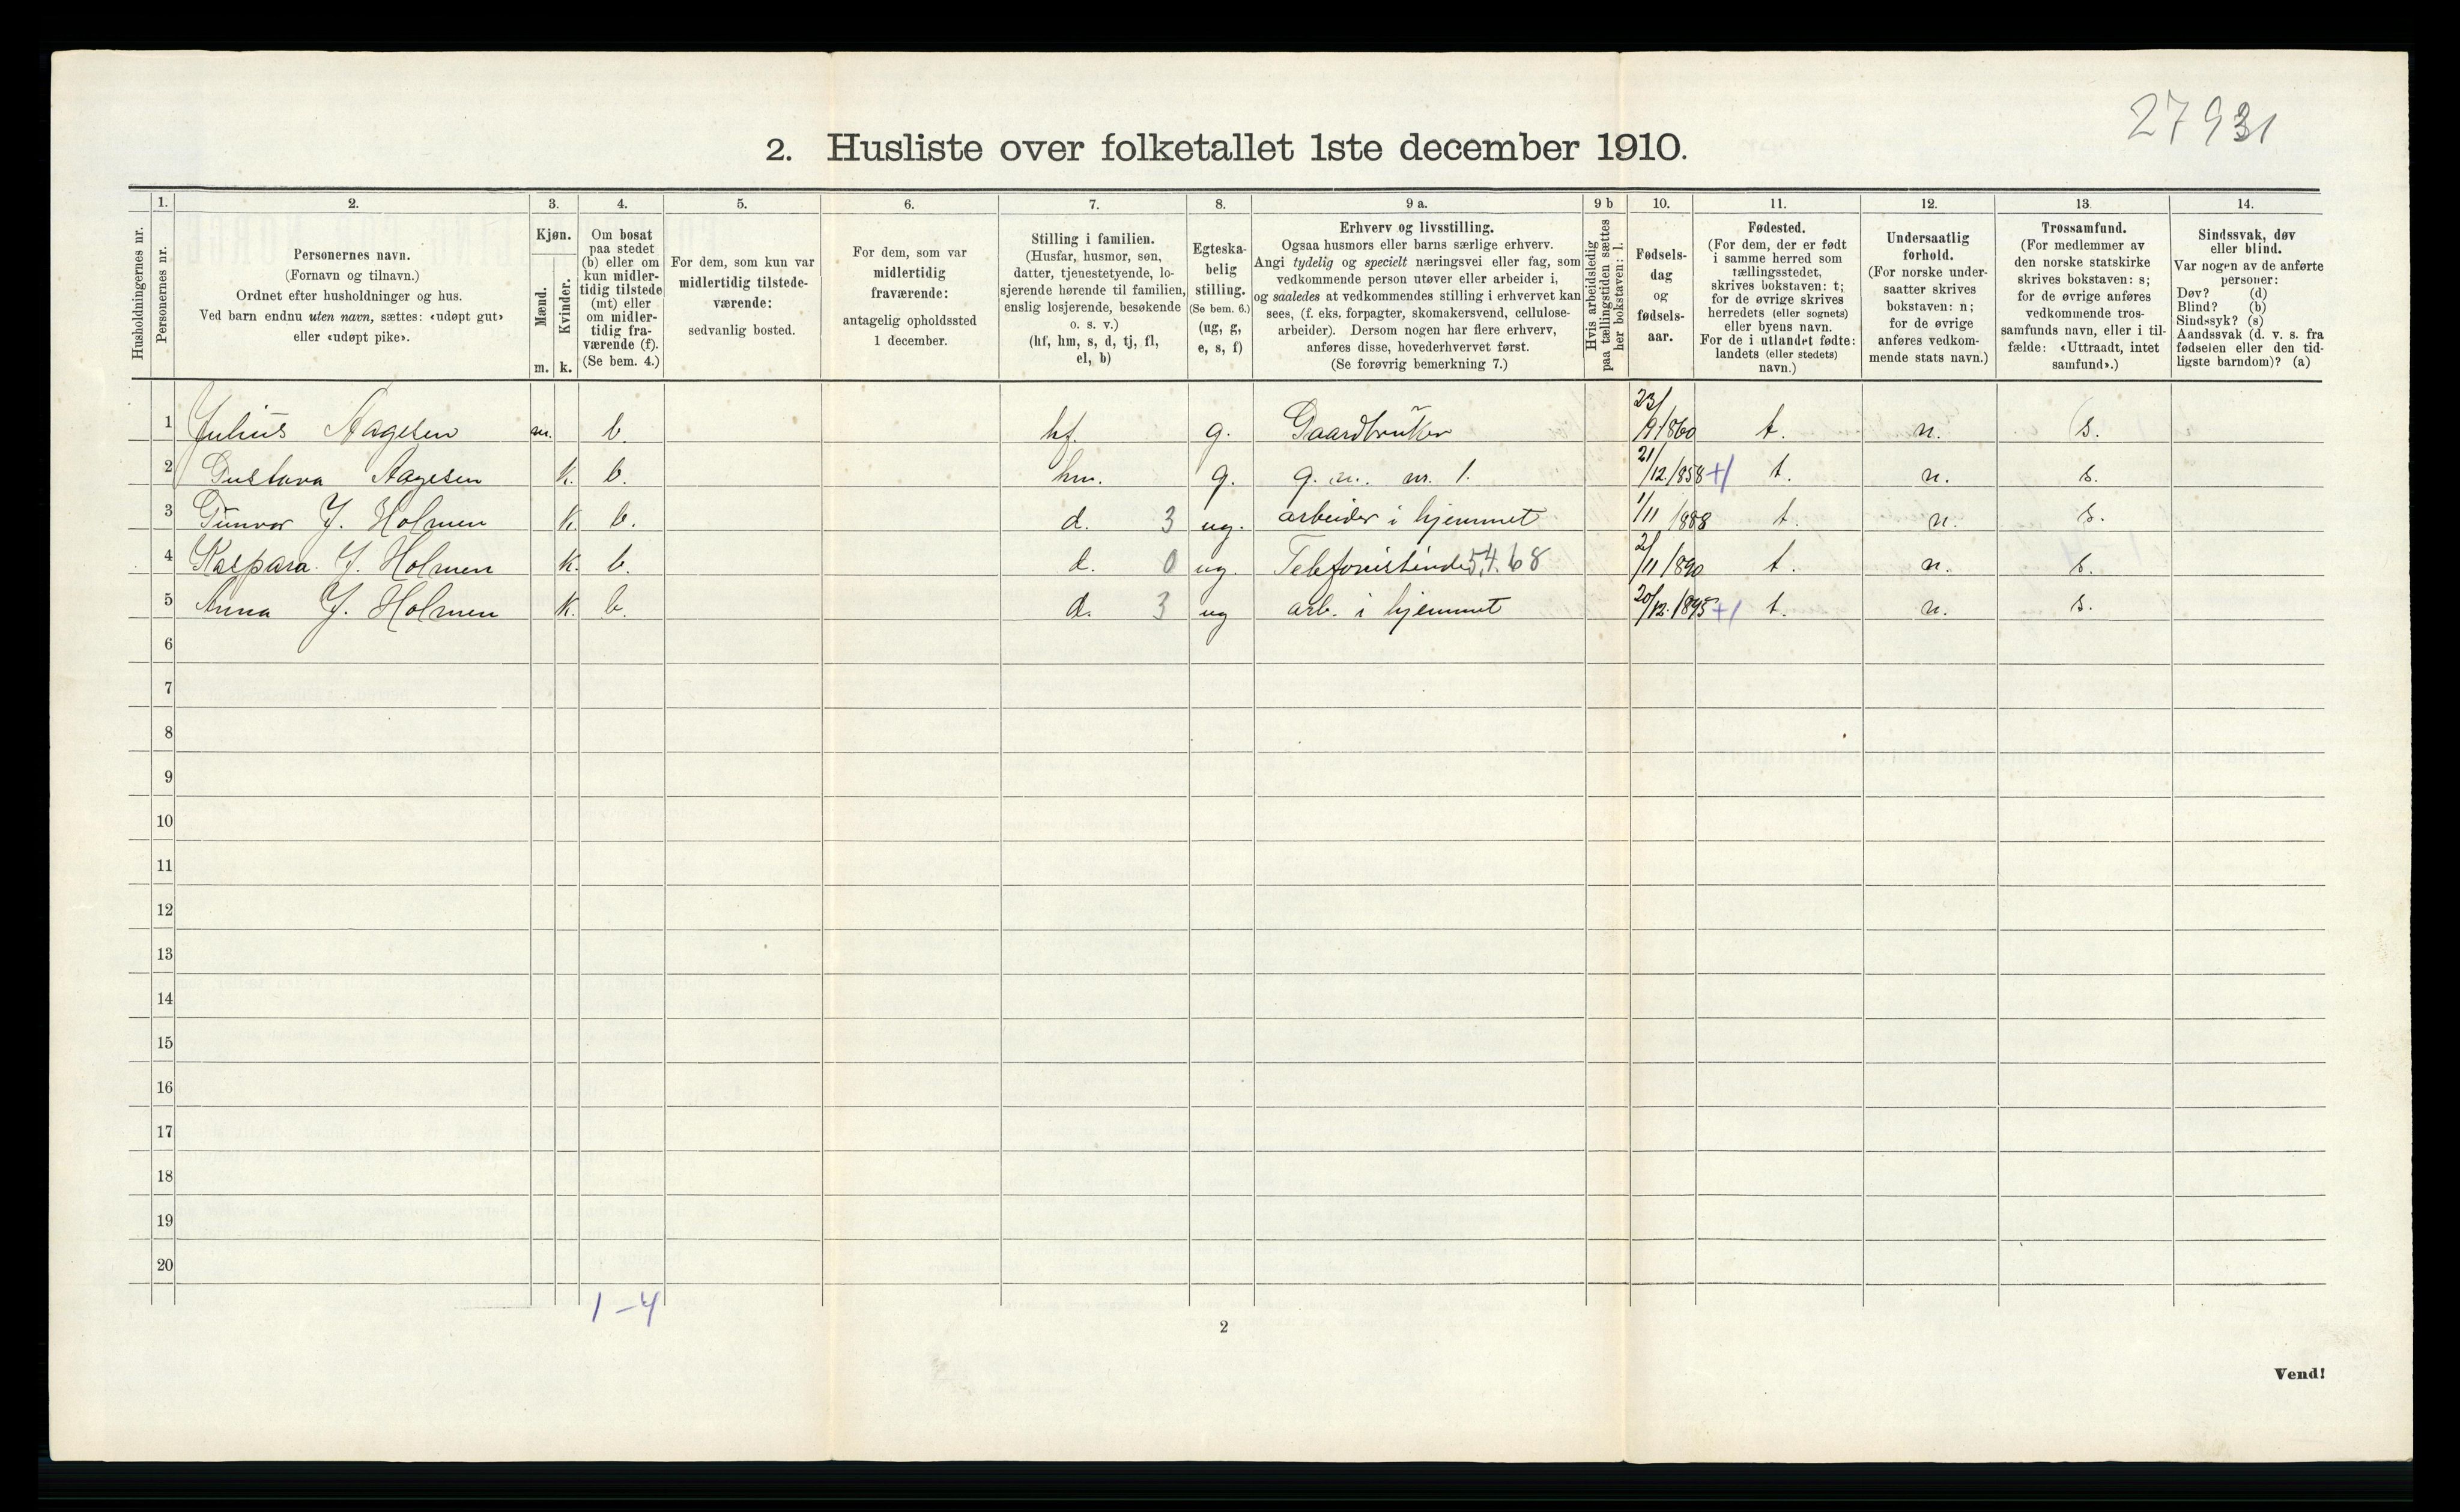 27931
2. Husliste over folketallet 1ste december 1910.
Husholdningernes nr.
1.
Personernes nr.
2.
Personernes navn.
(Fornavn og tilnavn.)
Ordnet efter husholdninger og hus.
Ved barn endnu uten navn, sættes: «udøpt gut»
eller «udøpt pike».
3.
Kjøn.
Mænd.
Kvinder.
m. k.
4.
Om bosat
paa stedet
(b) eller om
kun midler-
tidig tilstede
(mt) eller
om midler-
tidig fra-
værende (f).
(Se bem. 4.)
5.
For dem, som kun var
midlertidig tilstede-
værende:
sedvanlig bosted.
6.
For dem, som var
midlertidig
fraværende:
antagelig opholdssted
1 december.
7.
Stilling i familien.
(Husfar, husmor, søn,
datter, tjenestetyende, lo-
sjerende hørende til familien,
enslig losjerende, besøkende
o. s. v.)
(hf, hm, s, d, tj, fl,
el, b)
8.
Egteska-
belig
stilling.
(Se bem. 6.)
(ug, g,
e, s, f)
9 a.
Erhverv og livsstilling.
Ogsaa husmors eller barns særlige erhverv.
Angi tydelig og specielt næringsvei eller fag, som
vedkommende person utøver eller arbeider i,
og saaledes at vedkommendes stilling i erhvervet kan
sees, (f. eks. forpagter, skomakersvend, cellulose-
arbeider). Dersom nogen har flere erhverv,
anføres disse, hovederhvervet først.
(Se forøvrig bemerkning 7.)
9 b
Hvis arbeidsledig
paa tællingstiden sættes
her bokstaven: l.
10.
Fødsels-
dag
og
fødsels-
aar.
11.
Fødested.
(For dem, der er født
i samme herred som
tællingsstedet,
skrives bokstaven: t;
for de øvrige skrives
herredets (eller sognets)
eller byens navn.
For de i utlandet fødte:
landets (eller stedets)
navn.)
12.
Undersaatlig
forhold.
(For norske under-
saatter skrives
bokstaven: n;
for de øvrige
anføres vedkom-
mende stats navn.)
13.
Trossamfund.
(For medlemmer av
den norske statskirke
skrives bokstaven: s;
for de øvrige anføres
vedkommende tros-
samfunds navn, eller i til-
fælde: «Uttraadt, intet
samfund».)
14.
Sindssvak, døv
eller blind.
Var nogen av de anførte
personer:
Døv? (d)
Blind? (b)
Sindssyk? (s)
Aandssvak (d. v. s. fra
fødselen eller den tid-
ligste barndom)? (a)
1 Julius Aagesen m. b. hf. g. Gaardbruker 23/9 1860 t. n. s.
2 Gustava Aagesen k. b. hm. g. g. m. nr. 1. 21/12 1858 +1 t. n. s.
3 Gunvor J. Holmen k. b. d. 3 ug. arbeider i hjemmet 1/11 1888 t. n. s.
4 Kaspara J. Holmen k. b. d. 0 ug. Telefonistinde 5.4.68 2/11 1890 t. n. s.
5 Anna J. Holmen k. b. d. 3 ug arb. i hjemmet 20/12. 1895 +1 t. n. s.
6
7
8
9
10
11
12
13
14
15
16
17
18
19
20
1-4
2
Vend!